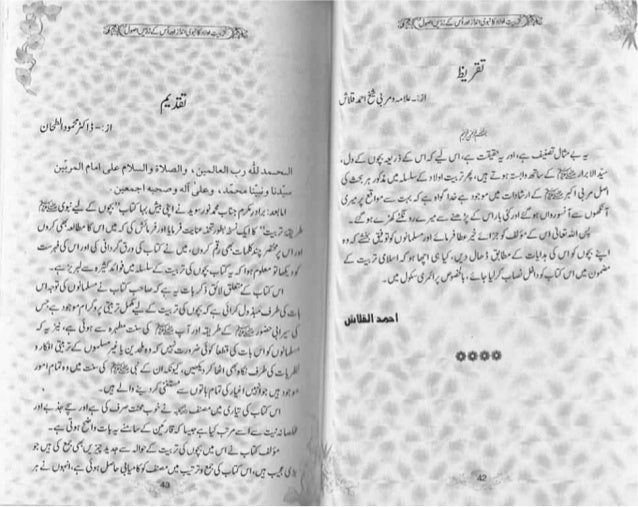 تربیت اولاد کا نبوی انداز اور اُس کے زرّیں اصول
تقریظ
از:۔ علامہ و مربی شیخ احمد قلاش
یہ بے مثال تصنیف ہے، اور یہ حقیقت ہے، اس لیے کہ اس کے ذریعہ بچوں کے دل،
سیّد الابرار ﷺ کے ساتھ وابستہ ہوتے ہیں، پھر تربیت اولاد کے سلسلہ میں مذکور ہر بحث کی
اصل مربی اکبر ﷺ کے ارشادات میں موجود ہے خدا گواہ ہے کہ بہت سے مواقع پر میری
آنکھوں سے آنسو رواں ہو گئے اور کئی بار اس کے پڑھنے سے میرے رونگٹے کھڑے ہو گئے۔
پس اللہ تعالیٰ اس کے مؤلف کو جزائے خیر عطا فرمائے اور مسلمانوں کو توفیق بخشے کہ وہ
اپنے بچوں کو اس کی ہدایات کے مطابق ڈھال دیں، کیا ہی اچھا ہو کہ اسلامی تربیت کے
مضمون میں اس کتاب کو داخل نصاب کر لیا جائے، بالخصوص پرائمری سکول میں۔
احمد القلاش
42
تربیت اولاد کا نبوی انداز اور اُس کے زرّیں اصول
تقدیم
از:۔ ڈاکٹر محمود الطحان
الحمد للّٰه رب العالمين، والصلاة والسلام على امام المربّين
سيّدنا ونبيّنا محمّد، وعلى آله وصحبه اجمعين۔
اما بعد! برادر مکرم جناب محمد نور سوید نے اپنی بیش بہا کتاب ”بچوں کے لیے نبوی ﷺ
طریقہ تربیت“ کا ایک نسخہ بطور تحفہ عنایت فرمایا اور فرمائش کی کہ میں اس کا مطالعہ بھی کروں
اور اس پر مختصر چند کلمات بھی رقم کروں، میں نے کتاب کی ورق گردانی کی اور اس کی فہرست
کو دیکھا تو معلوم ہوا کہ یہ کتاب بچوں کی تربیت کے سلسلہ میں فوائد کثیرہ سے لبریز ہے۔
اس کتاب کے متعلق لائق ذکر بات یہ ہے کہ صاحب کتاب نے مسلمانوں کی توجہ اس
بات کی طرف مبذول کرائی ہے کہ بچوں کی تربیت کے لیے مکمل تربیتی پروگرام موجود ہے جس
کی سیرابی حضور ﷺ کے طریقہ اور آپ ﷺ کی سنت مطہرہ سے ہوتی ہے، نیز یہ کہ
مسلمانوں کو اس بات کی قطعاً کوئی ضرورت نہیں کہ وہ ملحدین یا غیر مسلموں کے تربیتی افکار و
نظریات کی طرف نگاہ بھی اٹھا کر دیکھیں، کیونکہ ان کے نبی ﷺ کی سنت میں وہ تمام امور
موجود ہیں جو انہیں اغیار کی تمام باتوں سے مستغنی کر دینے والے ہیں۔
اس کتاب کی تیاری میں مصنف نے خوب محنت صرف کی ہے اور سچے جذبے اور
مخلصانہ نیت سے اسے مرتب کیا ہے جیسا کہ قارئین کے سامنے یہ بات واضح ہوتی ہے۔
مؤلف کتاب نے اس میں بچوں کی تربیت کے حوالہ سے جدید چیزیں بھی جمع کی ہیں جو
بڑی عجیب ہیں، اس کتاب کی جمع و ترتیب میں مصنف کو کامیابی حاصل ہوئی ہے، انہوں نے ہر
43